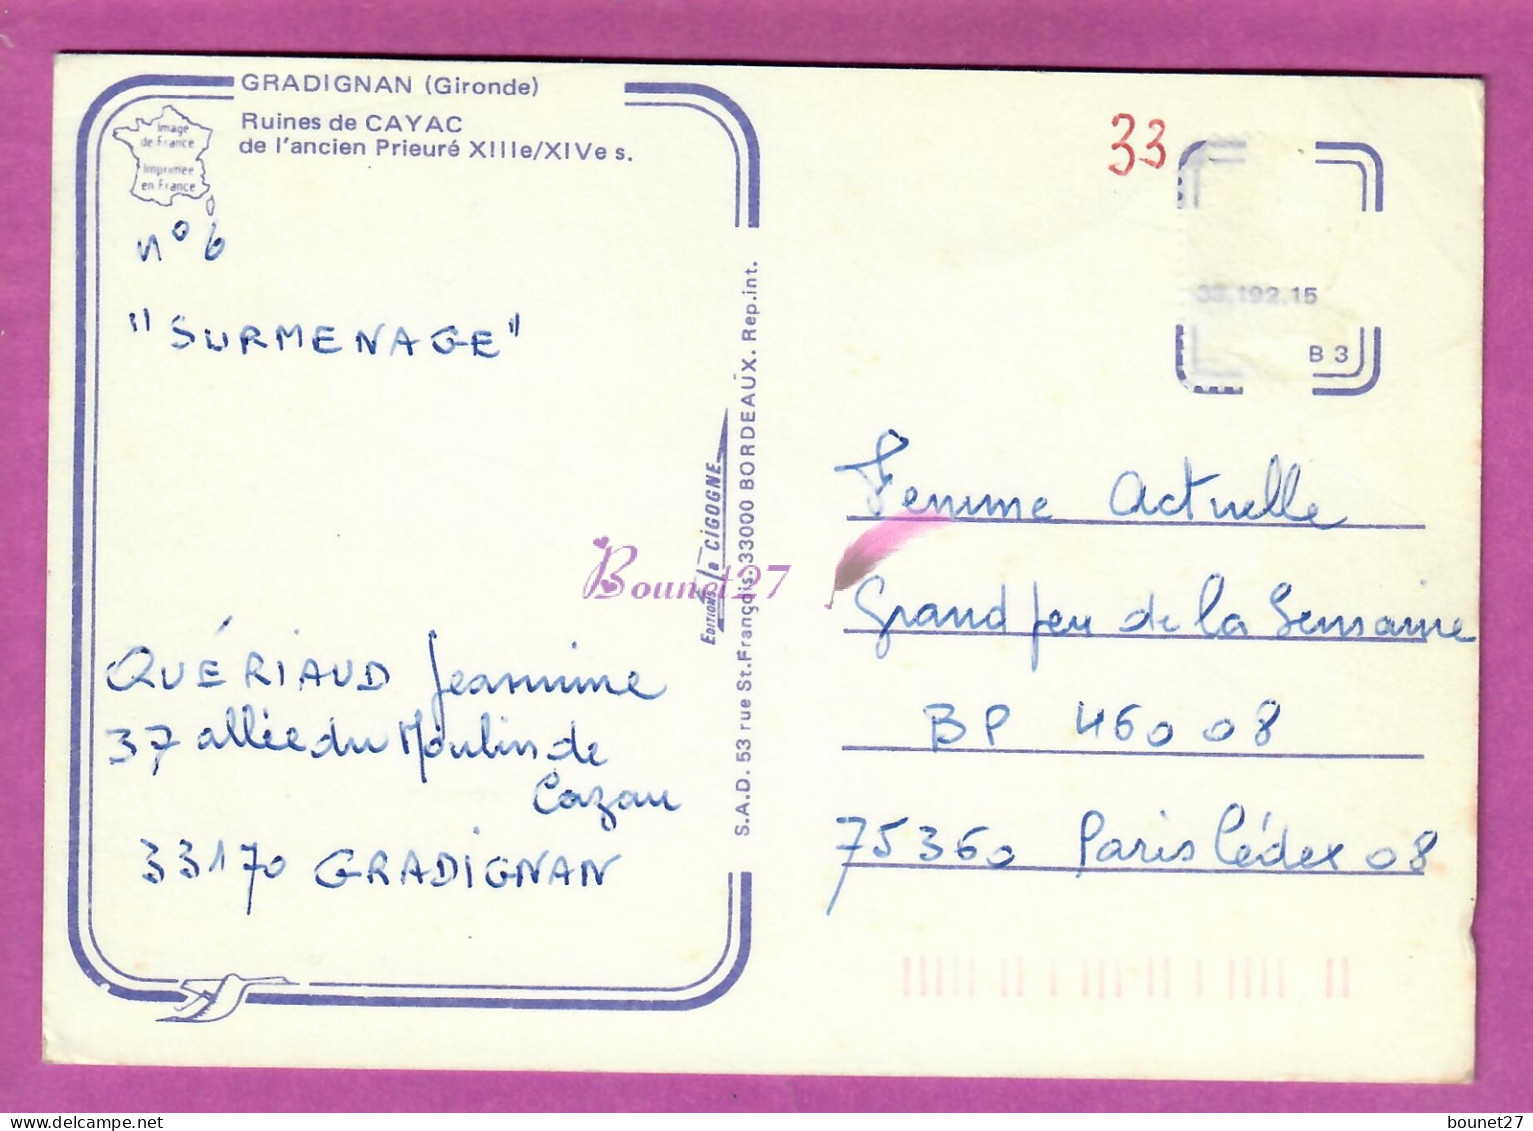 GRADIGNAN (Gironde)
Ruines de CAYAC
de l'ancien Prieuré XIIIe/XIVe s.
Image
de France
Imprimée
en France
n° 6
"SURMENAGE"
QUÉRIAUD Jeannine
37 allée du Moulin de
Cazau
33170 GRADIGNAN
EDITIONS la CIGOGNE
S.A.D. 53 rue St.François. 33000 BORDEAUX. Rep.int.
33
33.192.15
B 3
Femme Actuelle
Grand Jeu de la Semaine
BP 46008
75360 Paris Cédex 08
Bounet27
bounet27